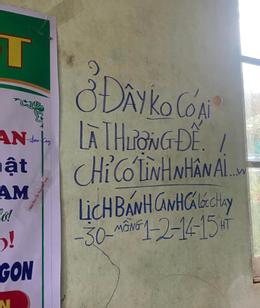 T
Ở ĐÂY KO CÓ AI
LÀ THƯỢNG ĐẾ.
CHỈ CÓ TÌNH NHÂN ÁI...
LỊCH BÁNH CANH CÁ LÓC CHAY
-30- MỒNG 1-2-14-15 HT
AN
hật
AM
!
GON